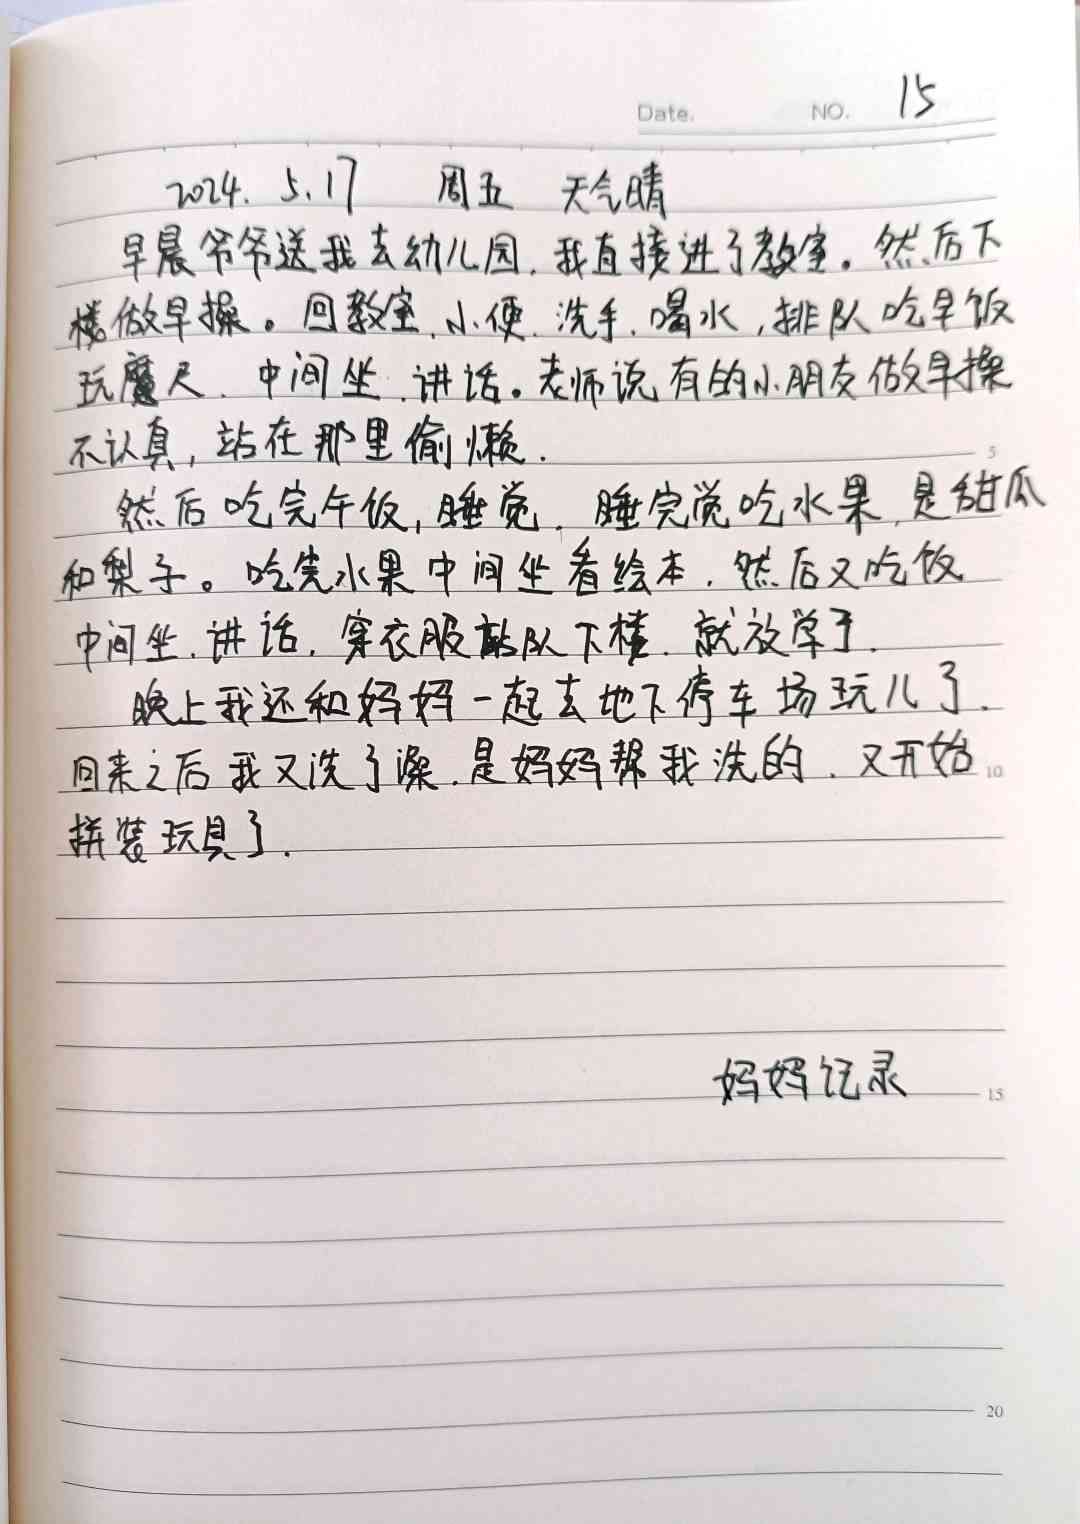 Date. NO. 15
2024. 5.17 周五 天气晴
早晨爷爷送我去幼儿园,我直接进了教室。然后下
楼做早操。回教室,小便,洗手,喝水,排队吃早饭
玩魔尺,中间坐,讲话。老师说有的小朋友做早操
不认真,站在那里偷懒.
5
然后吃完午饭,睡觉,睡完觉吃水果,是甜瓜
和梨子。吃完水果中间坐看绘本,然后又吃饭
中间坐,讲话,穿衣服站队下楼,就放学了.
晚上我还和妈妈一起去地下停车场玩儿了.
回来之后我又洗了澡,是妈妈帮我洗的,又开始
10
拼装玩具了.
妈妈记录
15
20